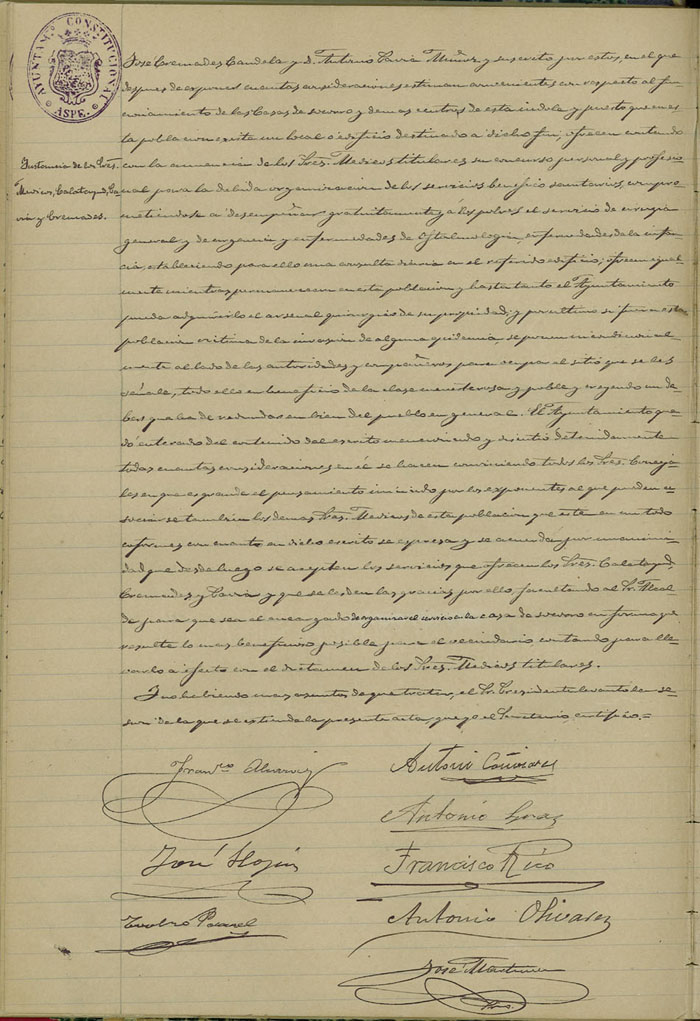 AYUNTAM.º CONSTITUCIONAL
ASPE.
Instancia de los Sres.
Médicos, Calatayud, Ga-
rria y Cremades.
José Cremades Candela y D. Antonio Muria Muñoz, y suscrito por estos, en el que
despues de exponer cuantas consideraciones estiman convenientes con respecto al fun-
cionamiento de las Casas de socorro y demas centros de esta indole y puesto que en es-
ta poblacion existe un local ó edificio destinado a dicho fin, ofrecen contando
con la anuencia de los Sres. Medicos titulares su concurso personal y profesio-
nal para la debida organizacion de los servicios benefico sanitarios, compro-
metiendose a desempeñar gratuitamente y á los pobres el servicio de cirugia
general y de urgencia y enfermedades de Oftalmologia, enfermedades de la infan-
cia, estableciendo para ello una consulta diaria en el referido edificio; ofrecen igual-
mente mientras permanezcan en esta poblacion y hasta tanto el Ayuntamiento
pueda adquirirlo el arsenal quirurgico de su propiedad; y por ultimo si fuera esta
poblacion victima de la invasion de alguna epidemia, se ponen incondicional-
mente al lado de las autoridades y compañeros para ocupar el sitio que se les
señale, todo ello en beneficio de la clase menesterosa y pobre y creyendo un de-
ber que ha de redundar en bien del pueblo en general. El Ayuntamiento que-
dó enterado del contenido del escrito mencionado y discutió detenidamente
todas cuantas consideraciones en él se hacen conviniendo todos los Sres. Conceja-
les en que es grande el pensamiento iniciado por los exponentes al que pueden a-
sociarse tambien los demas Sres. Medicos de esta poblacion y que este en un todo
conforme con cuanto en dicho escrito se expresa y se acuerda por unanimi-
dad que desde luego se acepten los servicios que ofrecen los Sres. Calatayud,
Cremades y y que se les den las gracias por ello, facultando al Sr. Alcal-
de para que sea el encargado de organizar el servicio en la casa de socorro en forma que
resulte lo mas beneficioso posible para el vecindario contando para lle-
varlo á efecto con el dictamen de los Sres. Medicos titulares.
Y no habiendo mas asuntos de que tratar, el Sr. Presidente levantó la se-
sion de la que se extiende la presente acta, que yo el Secretario, certifico.=
Antonio Cañizares
Antonio
José
Francisco Rico
Antonio Olivares
José Martinez
Srio.